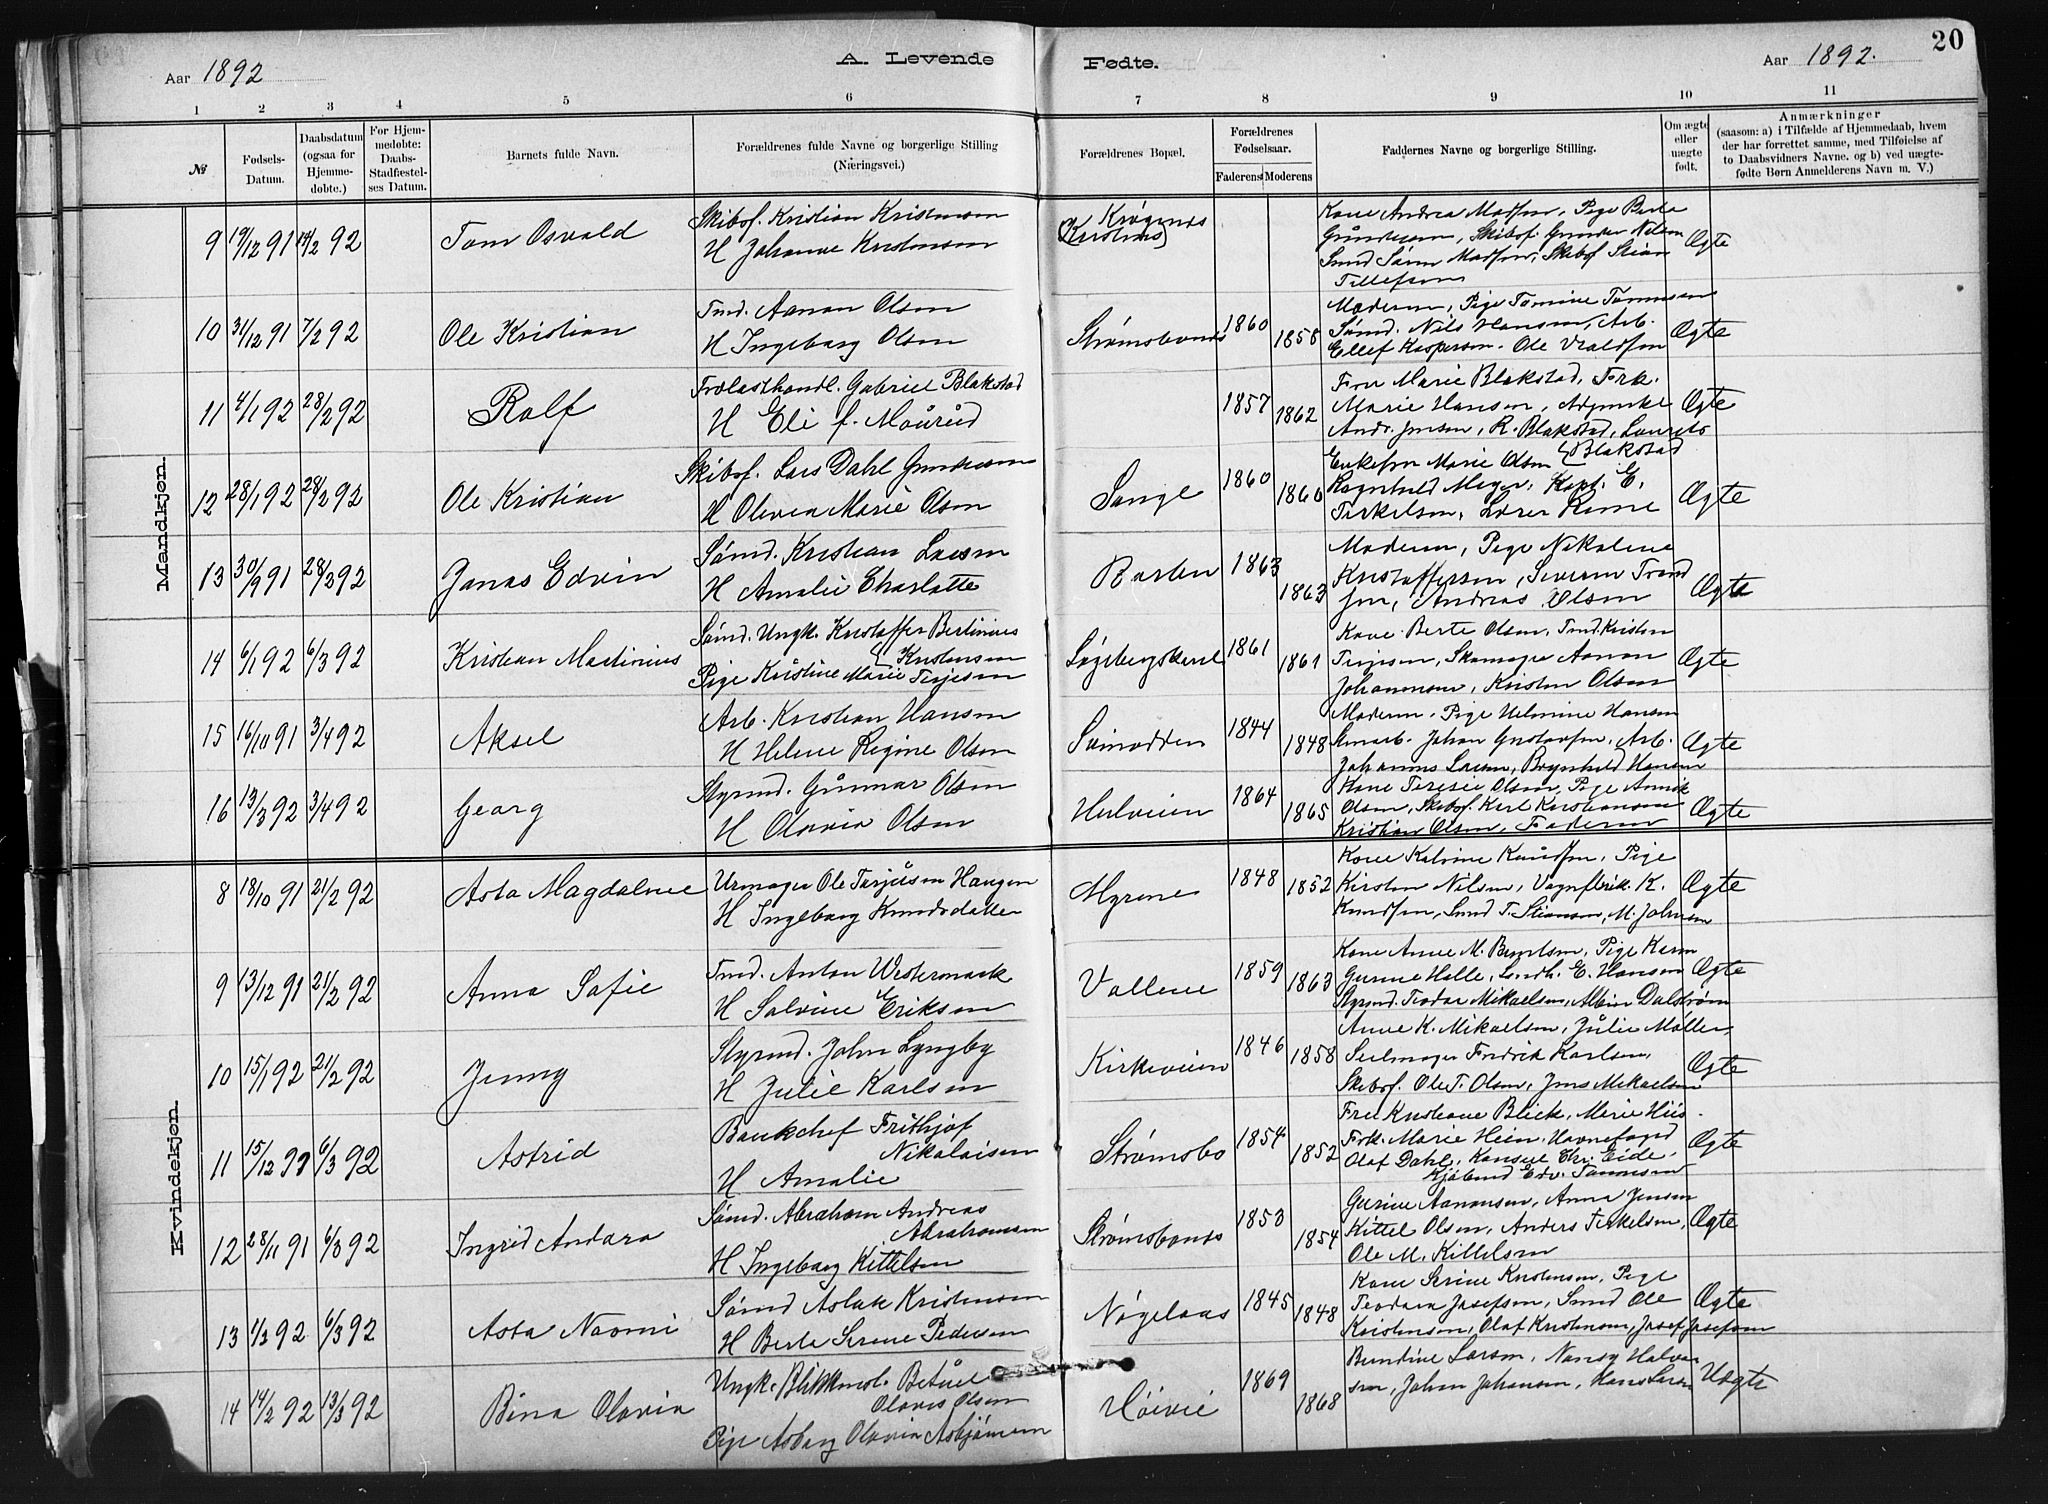 Aar 1892
A. Levende Fødte.
Aar 1892.
20
1 2 3 4 5 6 7 8 9 10 11
№
Fødsels-Datum.
Daabsdatum (ogsaa for Hjemme-døbte.)
For Hjem-medøbte: Daabs-Stadfæstel-ses Datum.
Barnets fulde Navn.
Forældrenes fulde Navne og borgerlige Stilling (Næringsvei.)
Forældrenes Bopæl.
Forældrenes Fødselsaar.
Faderens Moderens
Faddernes Navne og borgerlige Stilling.
Om ægte eller uægte født.
Anmærkninger
(saasom: a) i Tilfælde af Hjemmedaab, hvem
der har forrettet samme, med Tilføielse af
to Daabsvidners Navne, og b) ved uægte-
fødte Børn Anmelderens Navn m. V.)
Mandkjøn.
9 19/12 91 14/2 92 Tom Osvald
Skibsf. Kristian Kristensen
H Johanne Kristensen
Krøgenes
Kone Andrea Madsen, Pige Berte
Gundersen, Skibsf. Gunder Nilsen
Smed Søren Madsen, Skibsf Stian
Tellefsen
Ægte
10 31/12 91 7/2 92 Ole Kristian
Tmd. Aanon Olsen
H Ingeborg Olsen
Strømsbones 1860 1858
Moderen, Pige Tomine Tommesen
Sømd. Nils Hansen, Arb.
Ellef Kaspersen. Ole Vraldsen
Ægte
11 4/1 92 28/2 92 Rolf
Trælasthandl. Gabriel Blakstad
H Eli f. Mourud
1857 1862
Fru Marie Blakstad, Frk.
Marie Hansen,
Andr. Jensen, R. Blakstad, Laurits
Blakstad
Ægte
12 28/1 92 28/2 92 Ole Kristian
Skibsf. Lars Dahl Gundersen
H Olevea Marie Olsen
Songe 1860 1860
Enkefru Marie Olsen
Ragnhild Meyer, Kapt. E.
Terkelsen, Lærer Rome
Ægte
13 30/9 91 28/3 92 Jonas Edvin
Sømd. Kristian Larsen
H Amalie Charlotte
Barbu 1863 1863
Moderen, Pige Nikoline
Kristoffersen, Severin Trond
sen, Andreas Olsen
Ægte
14 6/1 92 6/3 92 Kristian Martinius
Sømd. Ungk. Kristoffer Bertinius
Kristensen
Pige Kristine Marie Terjesen
1861 1861
Kone Berte Olsen, Tmd. Kristen
Terjesen, Skomager Aanon
Johannesen, Kristen Olsen
Ægte
15 16/10 91 3/4 92 Aksel
Arb. Kristian Hansen
H Helene Regine Olsen
Svinodden 1844 1848
Moderen, Pige Helmine Hansen
Johan Gustavsen, Arb.
Johannes Larsen, Bergnhild Hansen
Ægte
16 13/3 92 3/4 92 Georg
Styrmd. Gunnar Olsen
H Olavia Olsen
Hulveien 1864 1865
Kone Teresie Olsen, Pige Annik
Olsen, Skibsf. Karl Kristiansen
Kristian Olsen, Faderen
Ægte
Kvindekjøn.
8 18/10 91 21/2 92 Asta Magdalene
Urmager Ole Terjesen Haugen
H Ingeborg Knudsdatter
Myrene 1848 1852
Kone Katrine Knudsen, Pige
Kirsten Nilsen, Vognfabrik. K.
Knudsen, Smed T. Stiansen, M. Johnsen
Ægte
9 13/12 91 21/2 92 Anna Sofie
Tmd. Anton Westermark
H Salvine Eriksen
Vollene 1859 1863
Kone Anne M. Berntsen, Pige Karen
Gurine Halle, Landh. E. Hansen
Styrmd. Teodor Mikaelsen, Albin Dalstrøm
Ægte
10 15/1 92 21/2 92 Jenny
Styrmd. John Lyngby
H Julie Karlsen
Kirkeveien 1846 1858
Anne K. Mikaelsen, Julie Møller,
Seilmager Fredrik Karlsen,
Skibsf. Ole T. Olsen, Jens Mikaelsen
Ægte
11 15/12 91 6/3 92 Astrid
Bankchef Frithjof
Nikolaisen
H Amalie
Strømsbo 1854 1852
Fru Kristiane Blick, Marie Hiis
Frk. Marie Hein, Havnefoged
Olaf Dahl, Konsul Chr. Eide,
Kjøbmd Edv. Tommesen
Ægte
12 28/11 91 6/3 92 Ingrid Andara
Sømd. Abraham Andreas
Abrahamsen
H Ingeborg Kittelsen
Strømsbones 1853 1854
Gurine Aanonsen, Anna Jensen
Kittel Olsen, Anders Terkelsen,
Ole M. Kittelsen
Ægte
13 1/3 92 6/3 92 Asta Naomi
Sømd Aslak Kristensen
H Berte Serene Pedersen
Nøgelaas 1845 1848
Kone Serine Kristensen, Pige
Teodora Josefsen, Smed Ole
Kristensen, Olaf Kristensen, Josef Josefsen
Ægte
14 14/2 92 13/3 92 Bina Olavia
Ungk. Blikkensl. Betuel
Olaves Olsen
Pige Asborg Olavia Asbjørnsen
Høivei 1869 1868
Berndine Larsen, Nancy Halvor
sen, Johan Johansen, Hans Larsen
Uægte